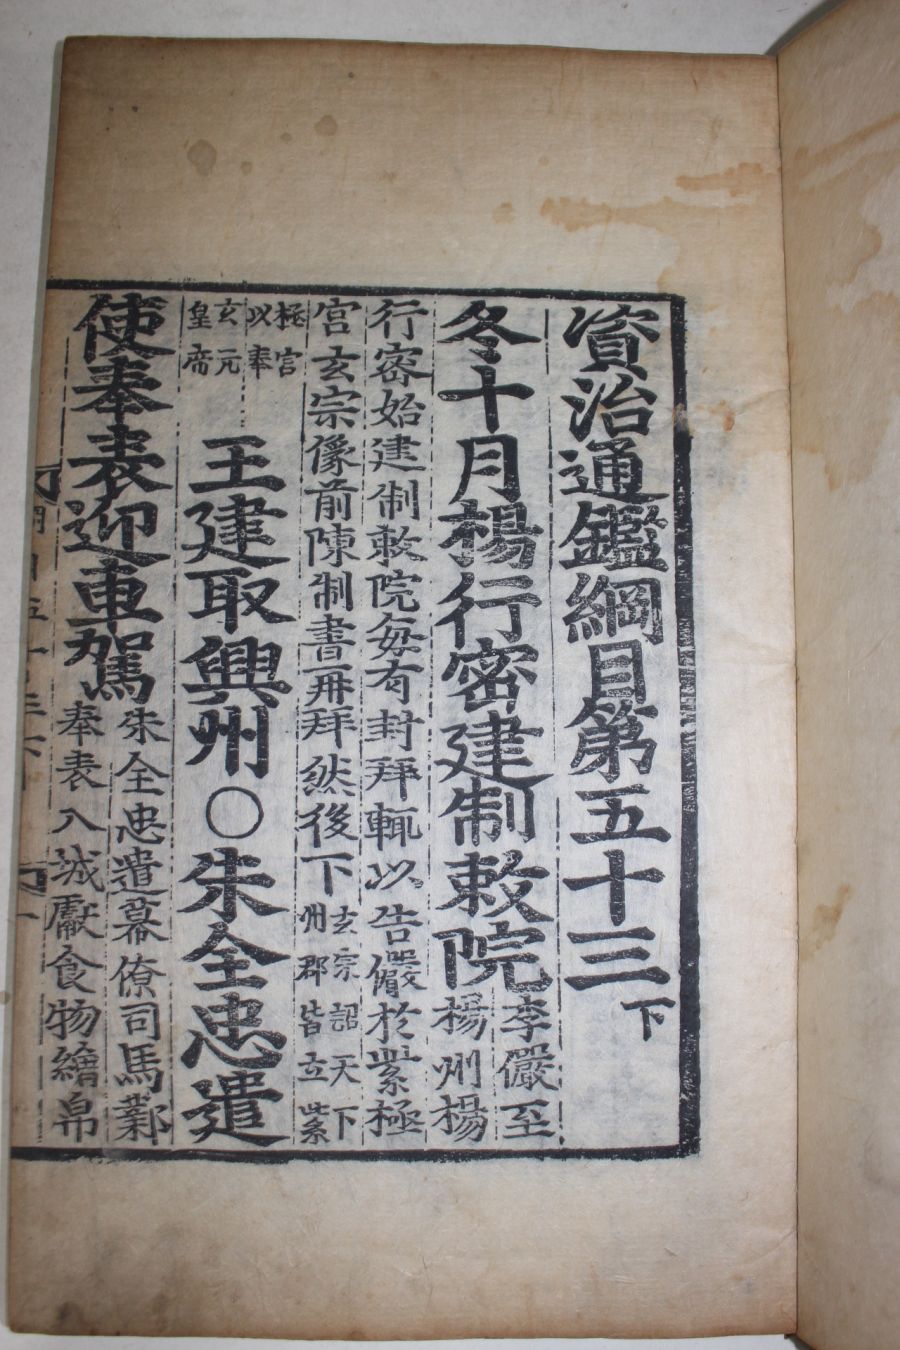 資治通鑑綱目第五十三下
冬十月楊行密建制敕院
李儼至
楊州楊
行密始建制敕院每有封拜輒以告儼於紫極
宮玄宗像前陳制書再拜然後下
玄宗詔天下
州郡皆立紫
極宮
以奉
玄元
皇帝
王建取興州○朱全忠遣
使奉表迎車駕
朱全忠遣幕僚司馬鄴
奉表入城獻食物繒帛